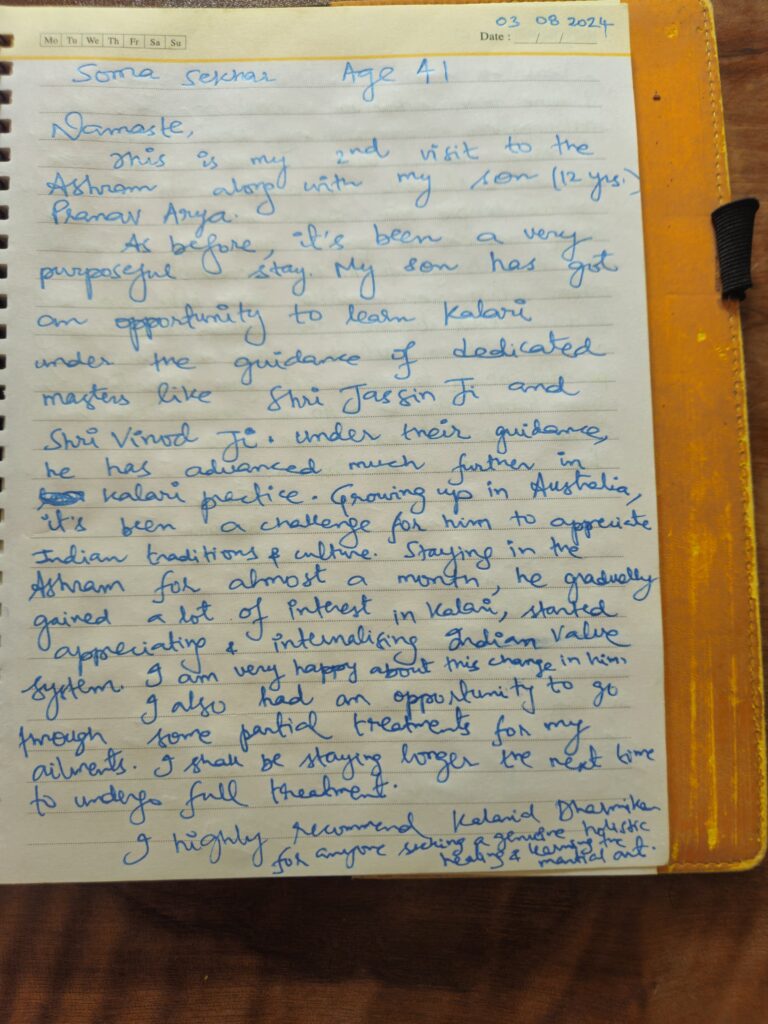 03 08 2024
Mo Tu We Th Fr Sa Su
Date : __/__/__
Soma Sekhar Age 41
Namaste,
This is my 2nd visit to the
Ashram along with my son (12 yrs.)
Pranav Arya.
As before, it's been a very
purposeful stay. My son has got
an opportunity to learn Kalari
under the guidance of dedicated
masters like Shri Jassin Ji and
Shri Vinod Ji. under their guidance,
he has advanced much further in
Kalari practice. Growing up in Australia,
it's been a challenge for him to appreciate
Indian traditions & culture. Staying in the
Ashram for almost a month, he gradually
gained a lot of interest in Kalari, started
appreciating & internalising Indian value
system. I am very happy about this change in him
I also had an opportunity to go
through some partial treatments for my
ailments. I shall be staying longer the next time
to undergo full treatment.
I highly recommend Kalarid Dharmikam
for anyone seeking a genuine holistic
healing & learning the
martial art.